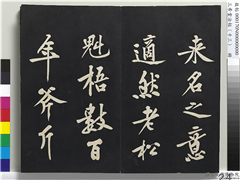 来名之意
適然老松
魁梧數百
年斧斤